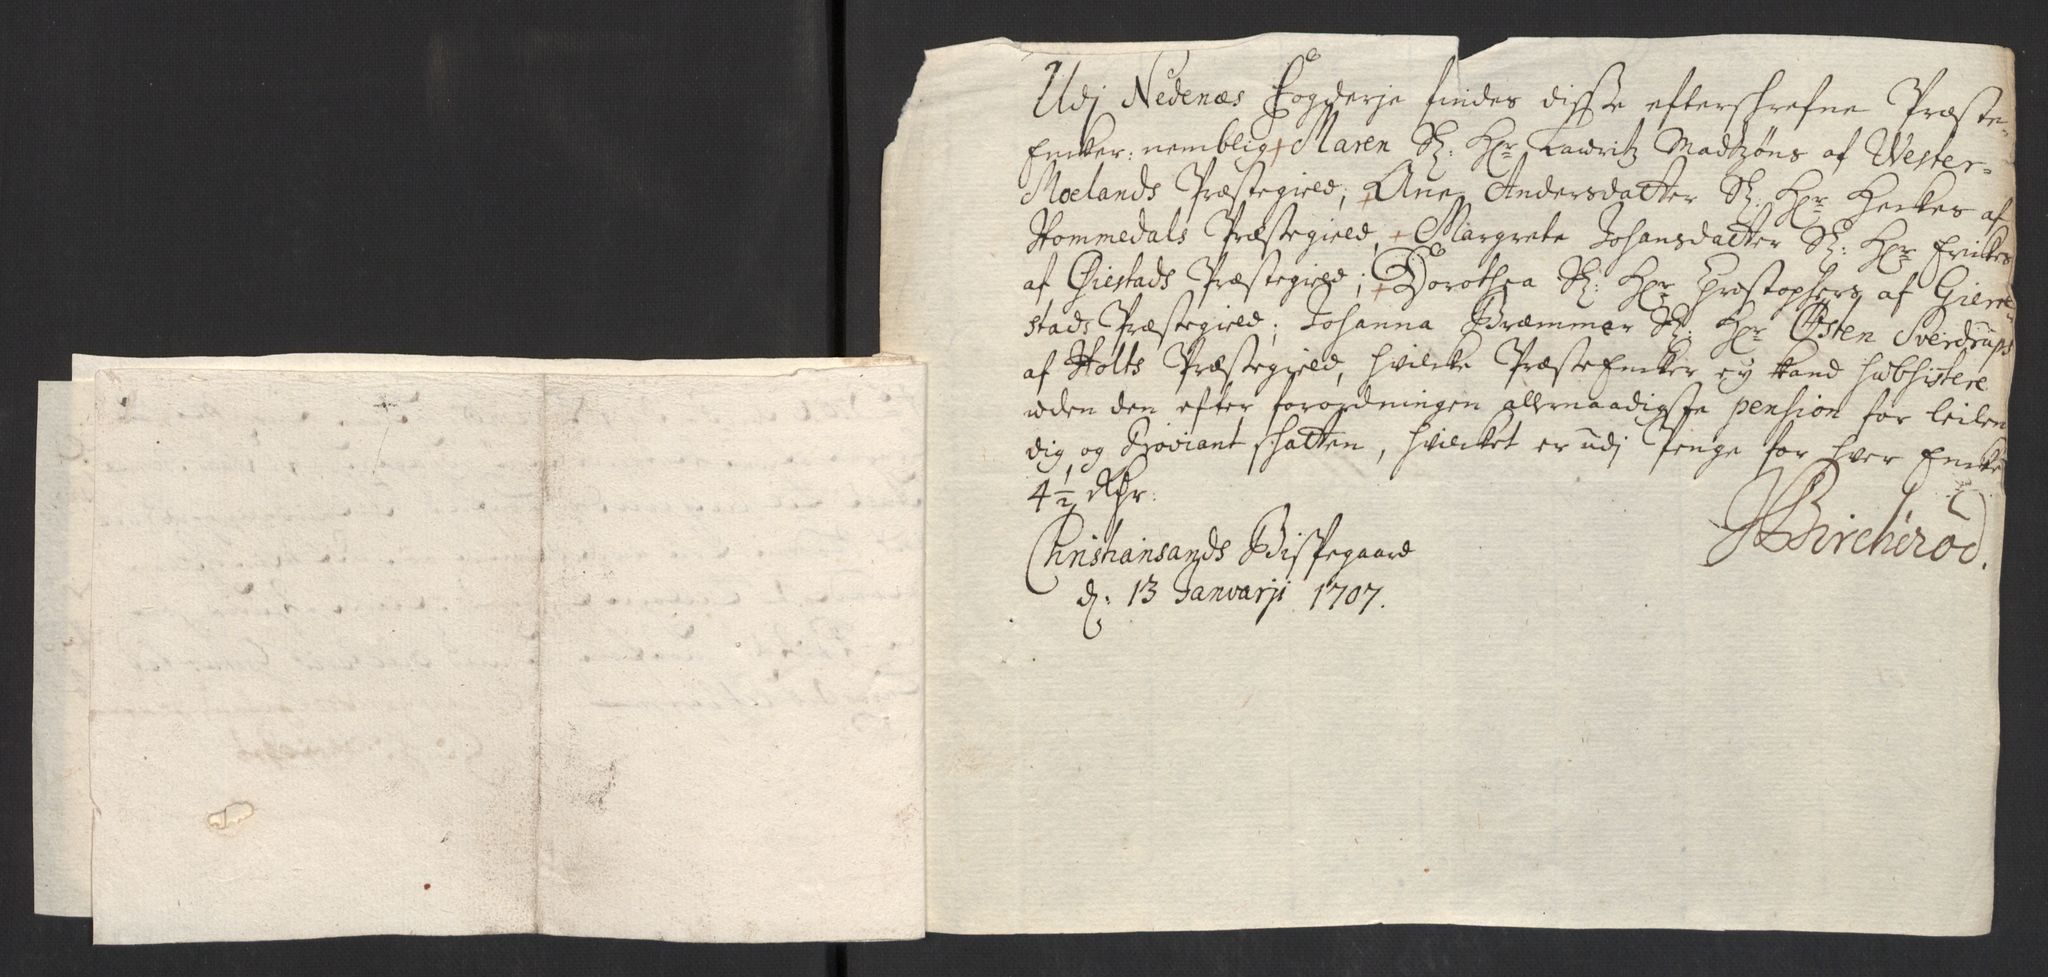 Udj Nedenæs Fogderje findes disse efterschrefne Præste-
Encker: nemblig + Maren Sl: Hr Lauritz Madtzøns af Wester-
Moelands Præstegield; + Ane Andersdatter Sl: Hr Herkes af
Hommedals Præstegield, + Margrete Johansdatter Sl: Hr Erickes
af Øiestads Præstegield; + Dorothea Sl: Hr Christophers af Gierre-
stads Præstegield; Johanna Bræmmer Sl: Hr Østen Sverdrups
af Holts Præstegield, hvilcke PræsteEncker ey kand subsistere
uden den efter forordningen allernaadigste pension for leilen
dig og Proviant schatten, hvilcket er udj Penge for hver Encke
4 1/2 Rdr:
Christiansands Bispegaard
d: 13 Januarji 1707.
JBircherod.